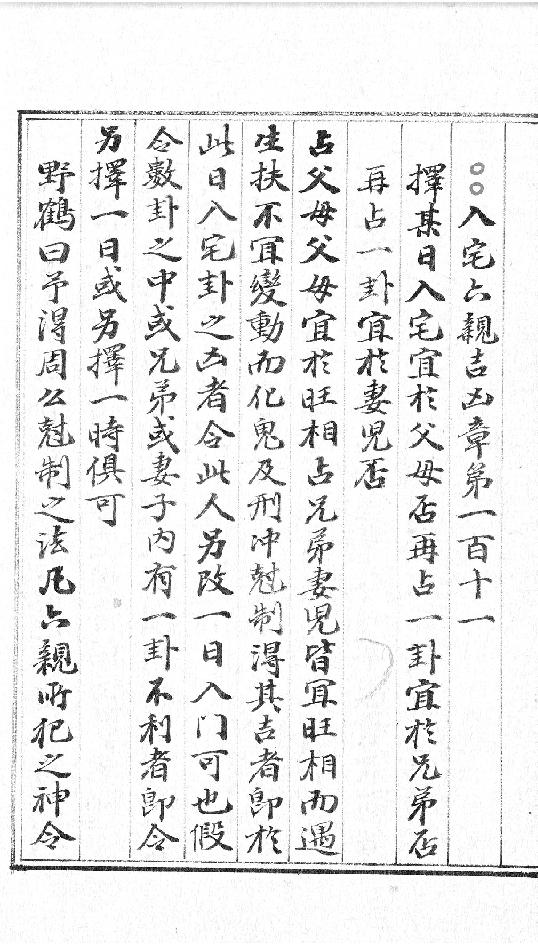 ○○入宅六親吉凶章第一百十一
擇某日入宅宜於父母否再占一卦宜於兄弟否
再占一卦宜於妻児否
占父母父母宜於旺相占兄弟妻児皆宜旺相而遇
生扶不宜變動而化鬼及刑冲尅制得其吉者即於
此日入宅卦之凶者令此人另改一日入门可也假
令數卦之中或兄弟或妻子内有一卦不利者即令
另擇一日或另擇一時俱可
野鶴曰予得周公尅制之法凡六親所犯之神令